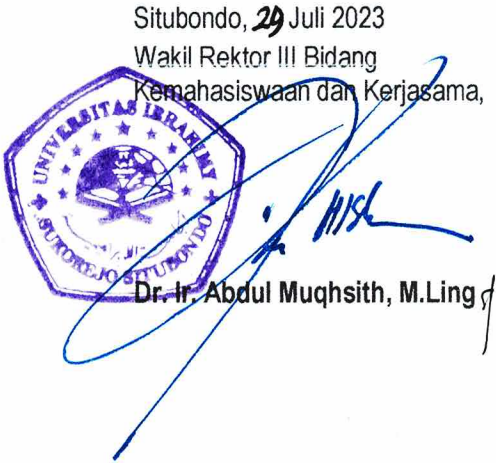 Situbondo, 29 Juli 2023
Wakil Rektor III Bidang
Kemahasiswaan dan Kerjasama,
UNIVERSITAS IBRAHIMY
SUKOREJO SITUBONDO
Dr. Ir. Abdul Muqhsith, M.Ling